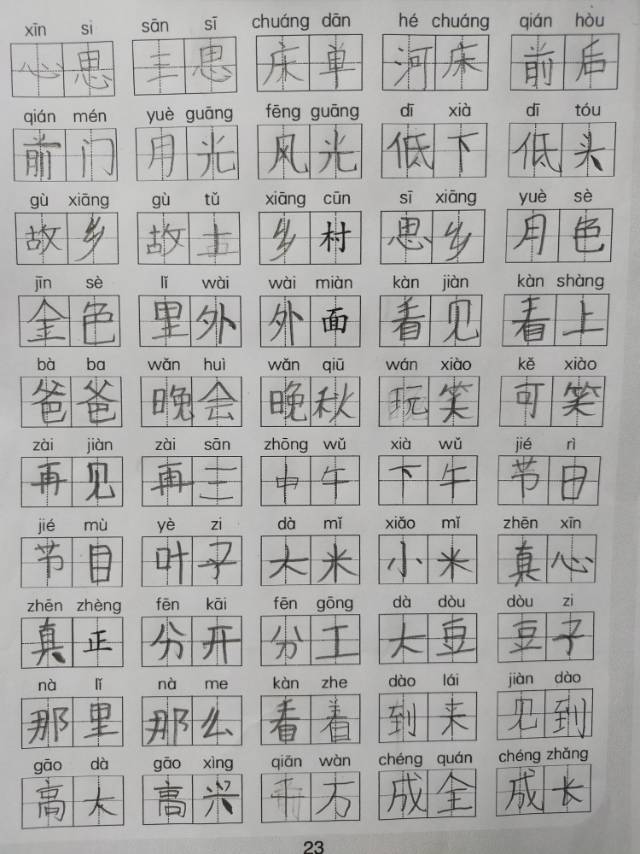 xīn si sān sī chuáng dān hé chuáng qián hòu
心思 三思 床单 河床 前后
qián mén yuè guāng fēng guāng dī xià dī tóu
前门 月光 风光 低下 低头
gù xiāng gù tǔ xiāng cūn sī xiāng yuè sè
故乡 故土 乡村 思乡 月色
jīn sè lǐ wài wài miàn kàn jiàn kàn shàng
金色 里外 外面 看见 看上
bà ba wǎn huì wǎn qiū wán xiào kě xiào
爸爸 晚会 晚秋 玩笑 可笑
zài jiàn zài sān zhōng wǔ xià wǔ jié rì
再见 再三 中午 下午 节日
jié mù yè zi dà mǐ xiǎo mǐ zhēn xīn
节目 叶子 大米 小米 真心
zhēn zhèng fēn kāi fēn gōng dà dòu dòu zi
真正 分开 分工 大豆 豆子
nà lǐ nà me kàn zhe dào lái jiàn dào
那里 那么 看着 到来 见到
gāo dà gāo xìng qiān wàn chéng quán chéng zhǎng
高大 高兴 千万 成全 成长
23